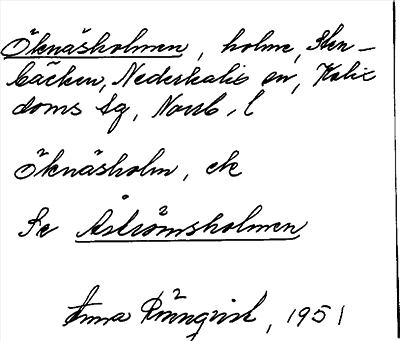 Öknäsholmen, holme, Sten-
bäcken, Nederkalix sn, Kalix
doms sg, Norrb. l
Öknäsholm, ek
Se Åströmsholmen
Anna Rönnqvist, 1951